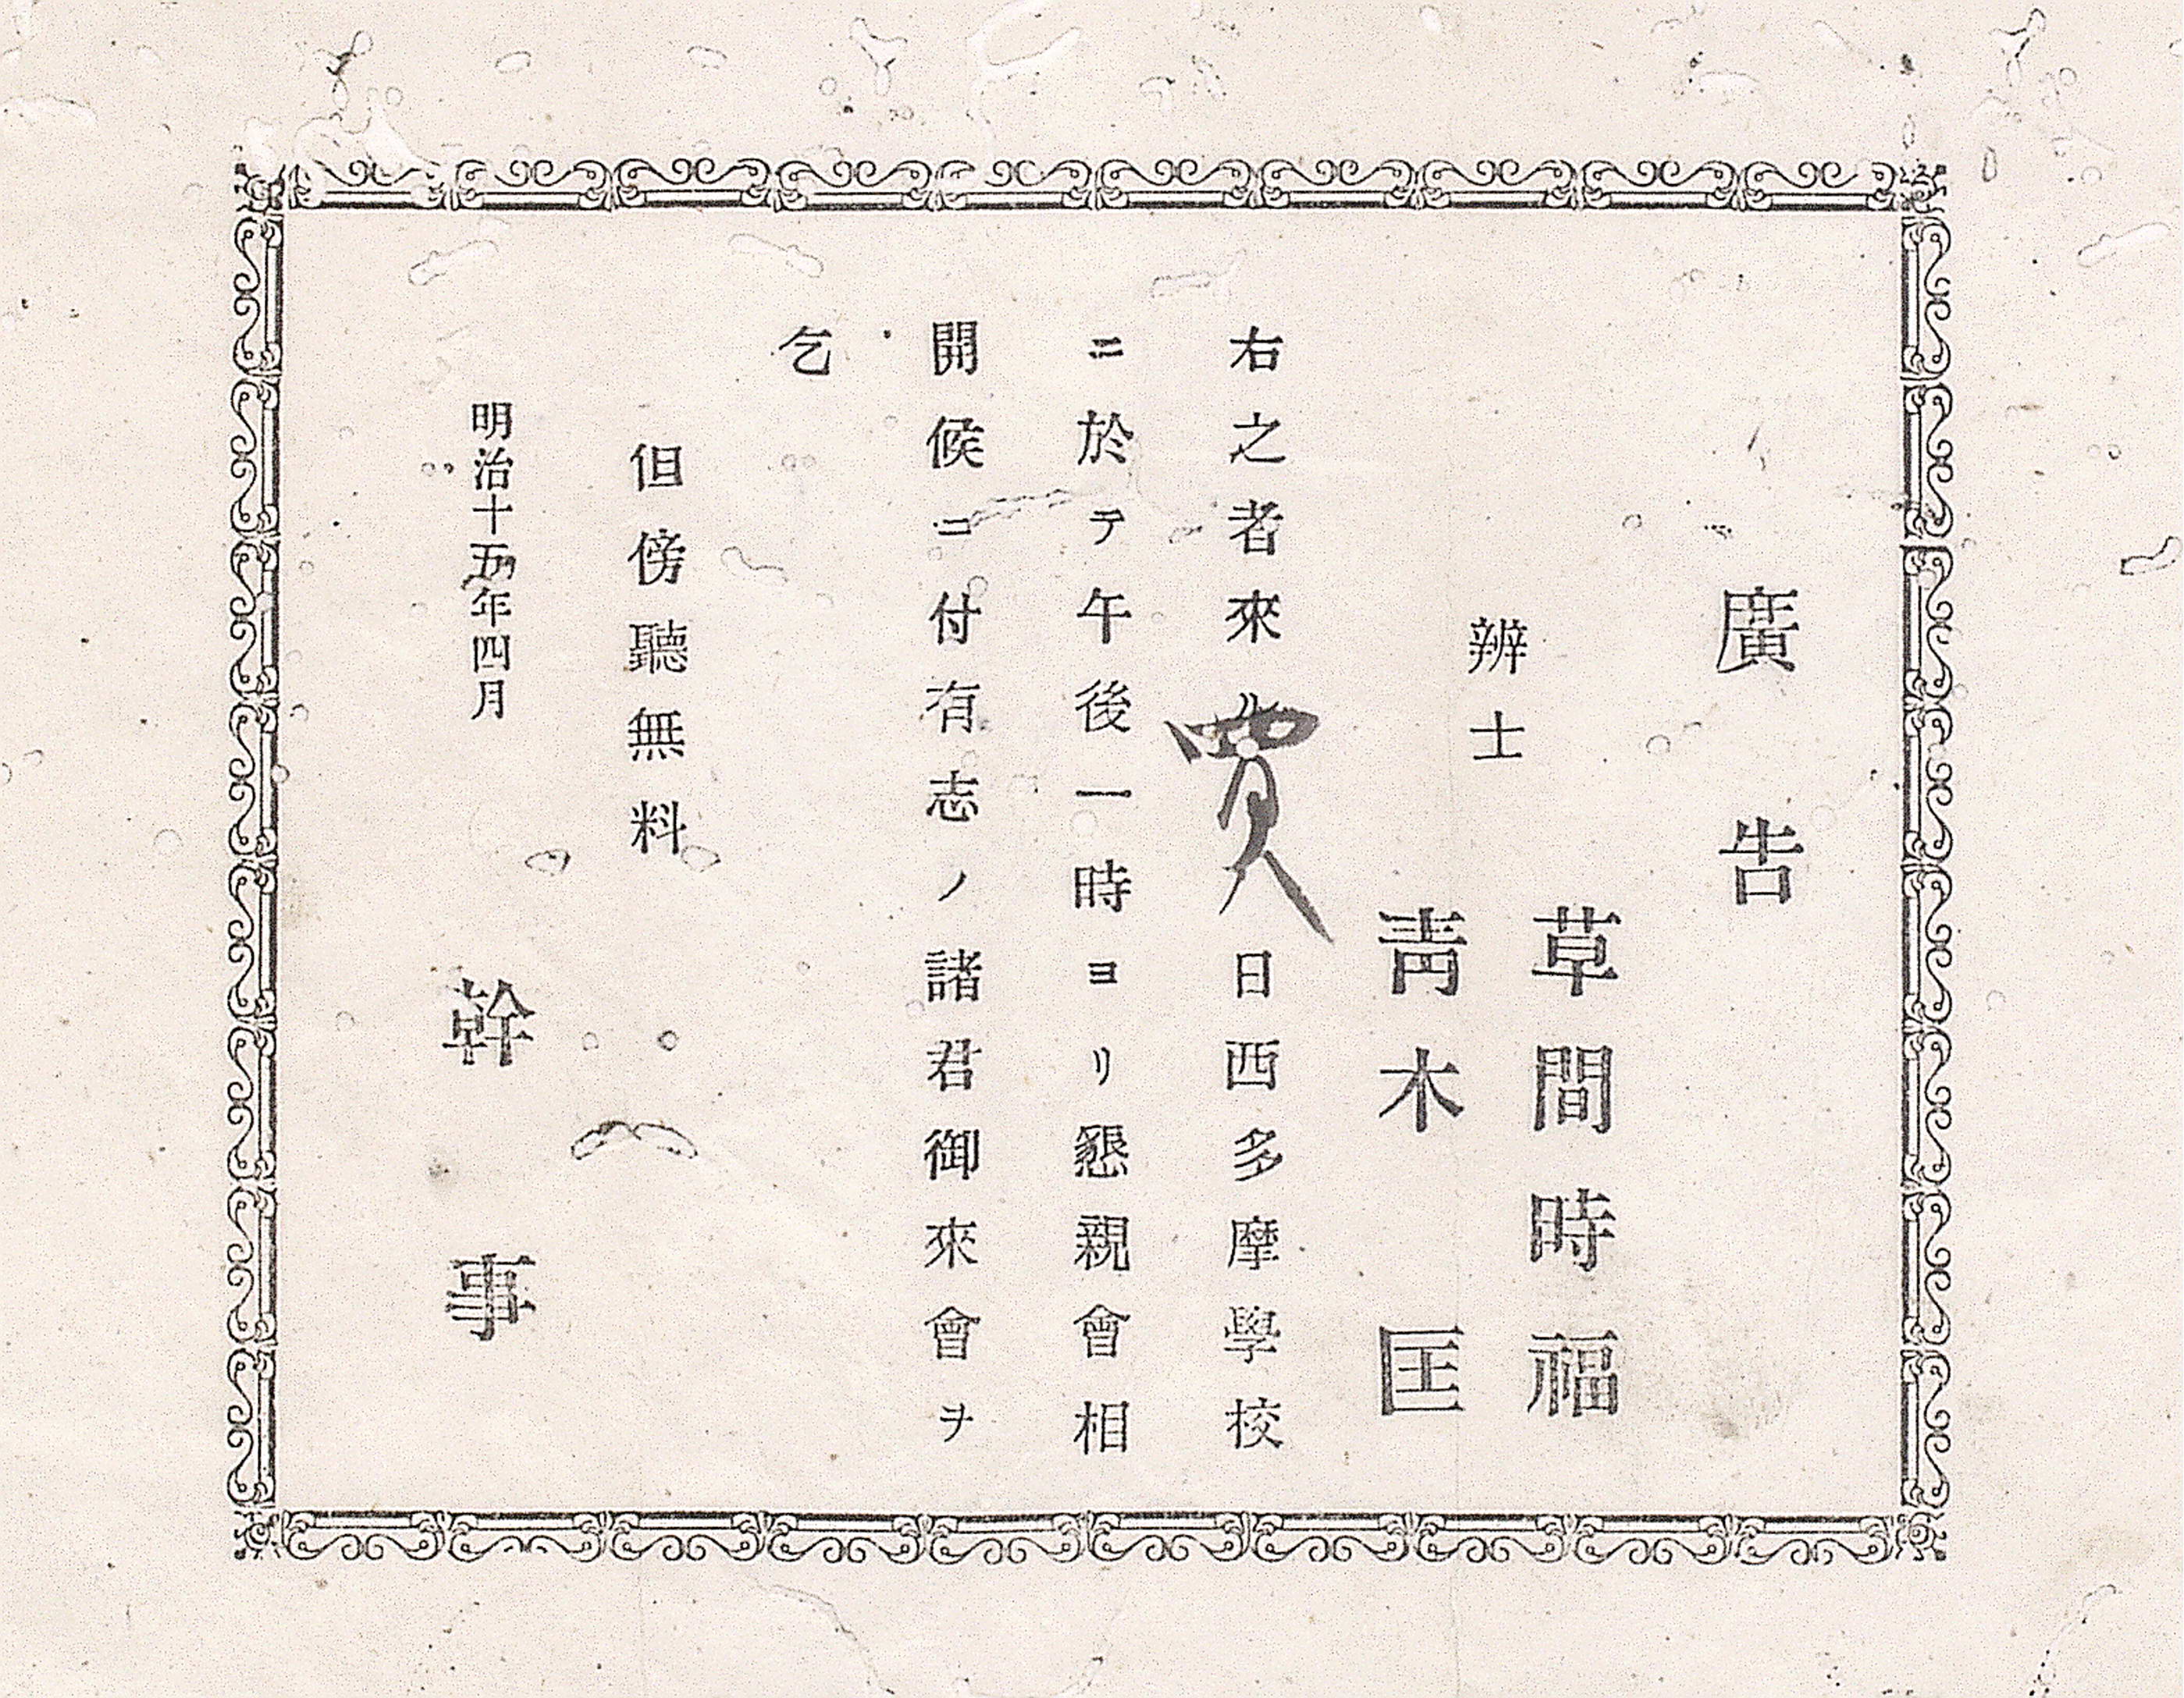 廣告
辨士
草間時福
靑木匡
右之者來ル四月八日西多摩學校
ニ於テ午後一時ヨリ懇親會相
開候ニ付有志ノ諸君御來會ヲ
乞
但傍聽無料
明治十五年四月
幹事